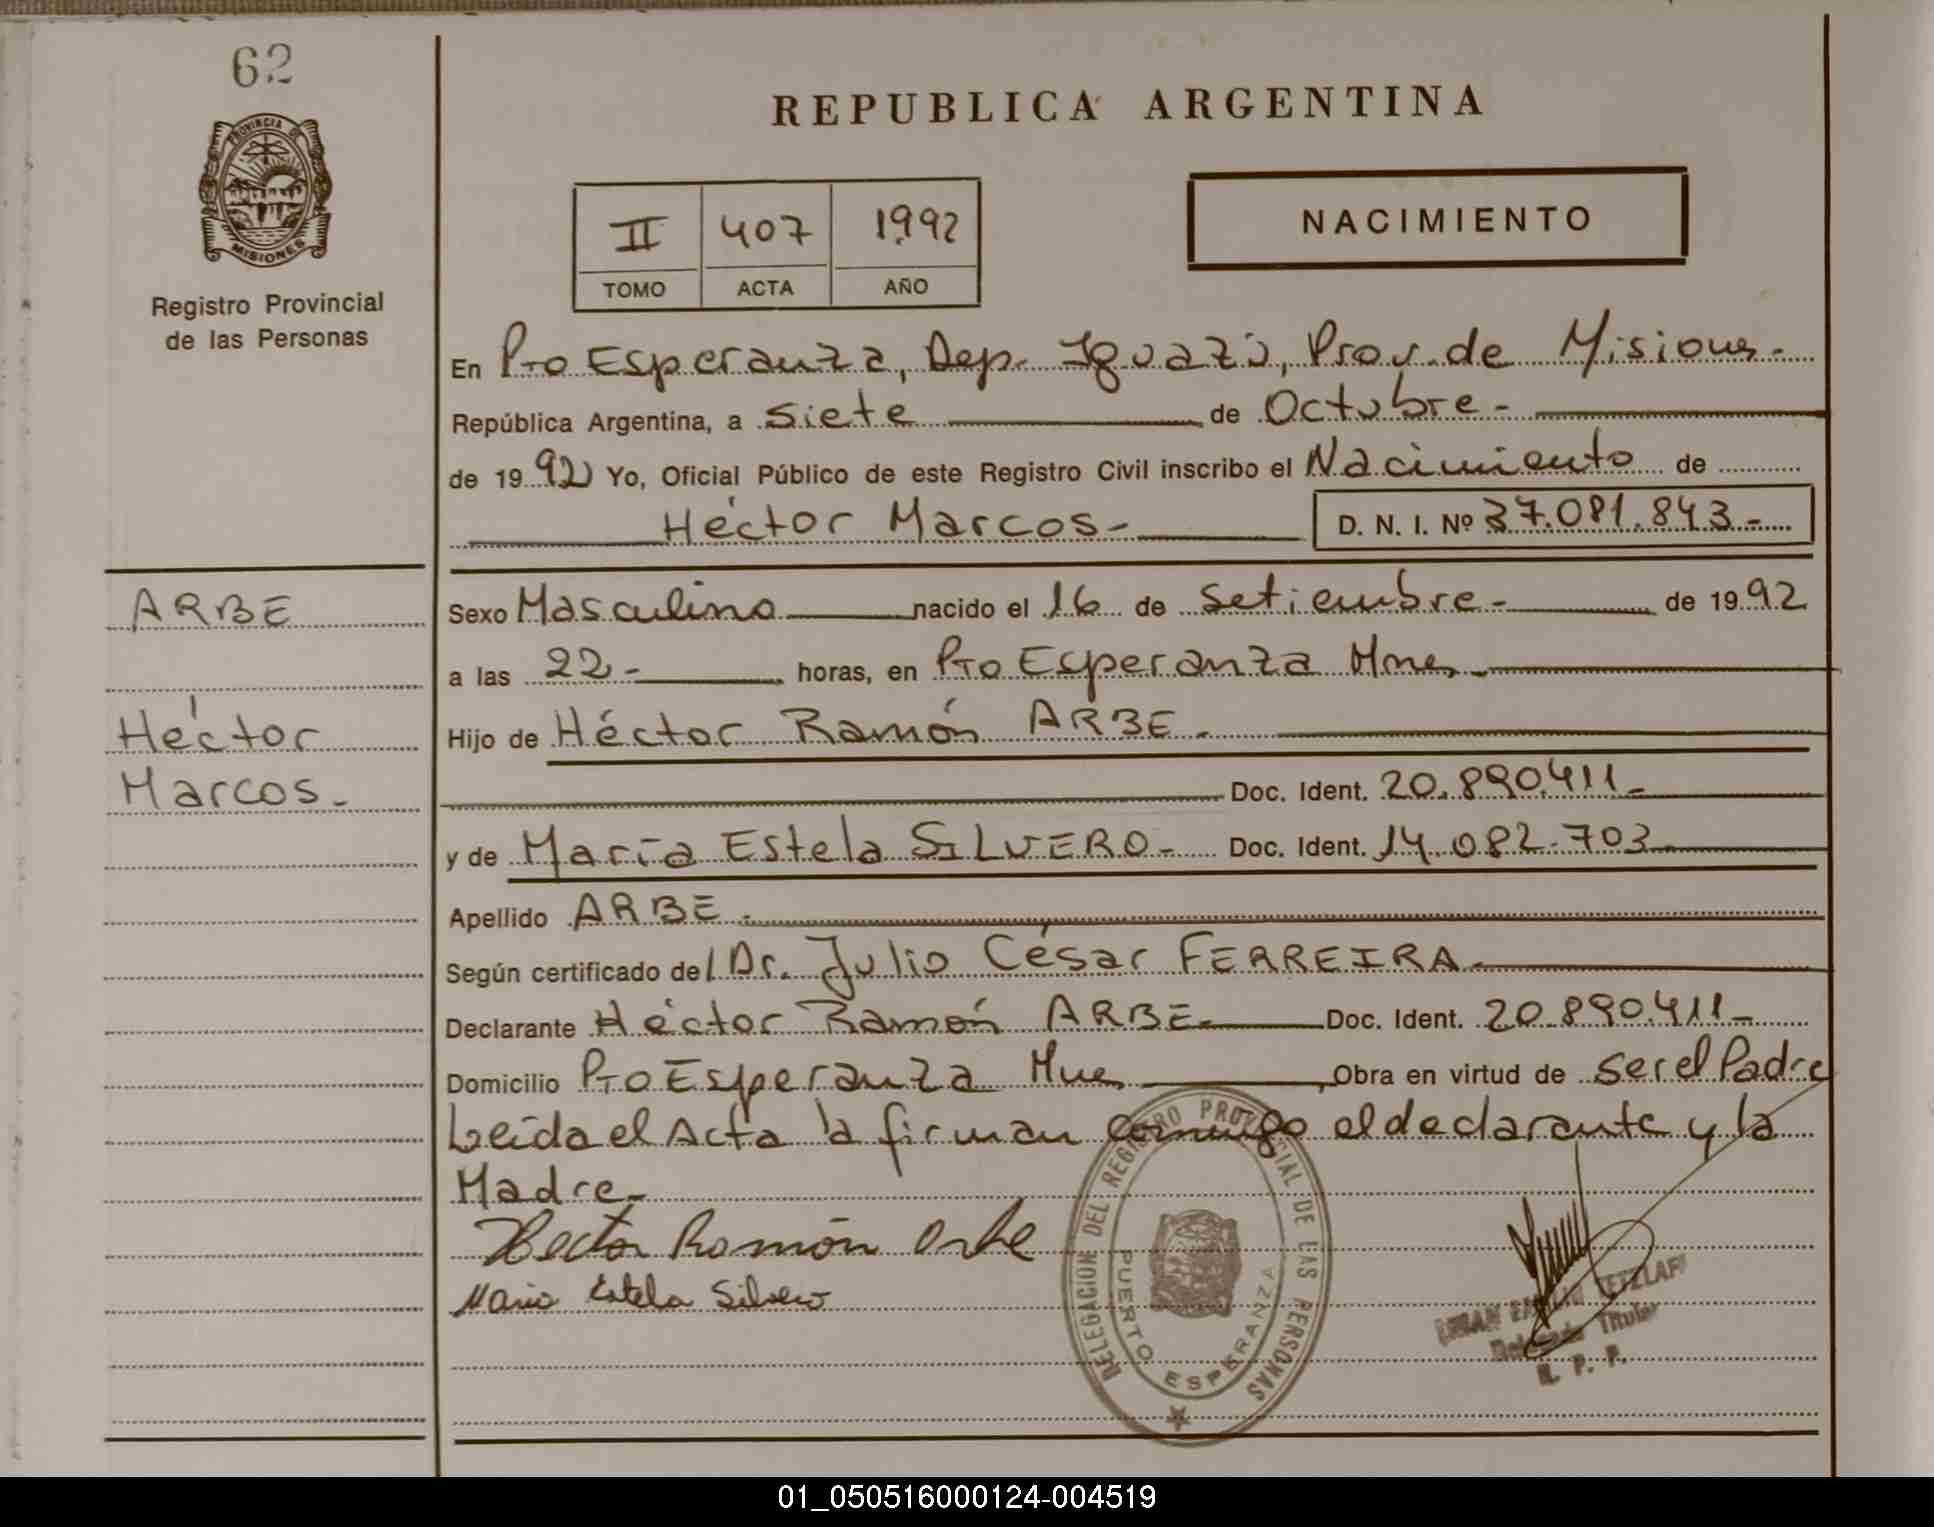 62
PROVINCIA DE
MISIONES
Registro Provincial
de las Personas
REPUBLICA ARGENTINA
II 407 1992
TOMO ACTA AÑO
NACIMIENTO
En Pto Esperanza, Dep. Iguazú, Prov. de Misiones.
República Argentina, a siete de Octubre -
de 1992 Yo, Oficial Público de este Registro Civil inscribo el Nacimiento de
Héctor Marcos - D. N. I. Nº 37.081.843 -
ARBE
Héctor
Marcos -
Sexo Masculino nacido el 16 de Setiembre - de 1992
a las 22 - horas, en Pto Esperanza Mnes
Hijo de Héctor Ramón ARBE.
Doc. Ident. 20.890.411 -
y de María Estela SILVERO - Doc. Ident. 14.082.703
Apellido ARBE.
Según certificado del Dr. Julio César FERREIRA
Declarante Héctor Ramón ARBE Doc. Ident. 20.890.411 -
Domicilio Pto Esperanza Mnes, Obra en virtud de ser el Padre
Leída el Acta la firman conmigo el declarante y la
Madre -
Hector Ramón Arbe
Maria Estela Silvero
DELEGACION DEL REGISTRO PROVINCIAL DE LAS PERSONAS
PUERTO ESPERANZA
Delegado Titular
R. P. P.
01_050516000124-004519